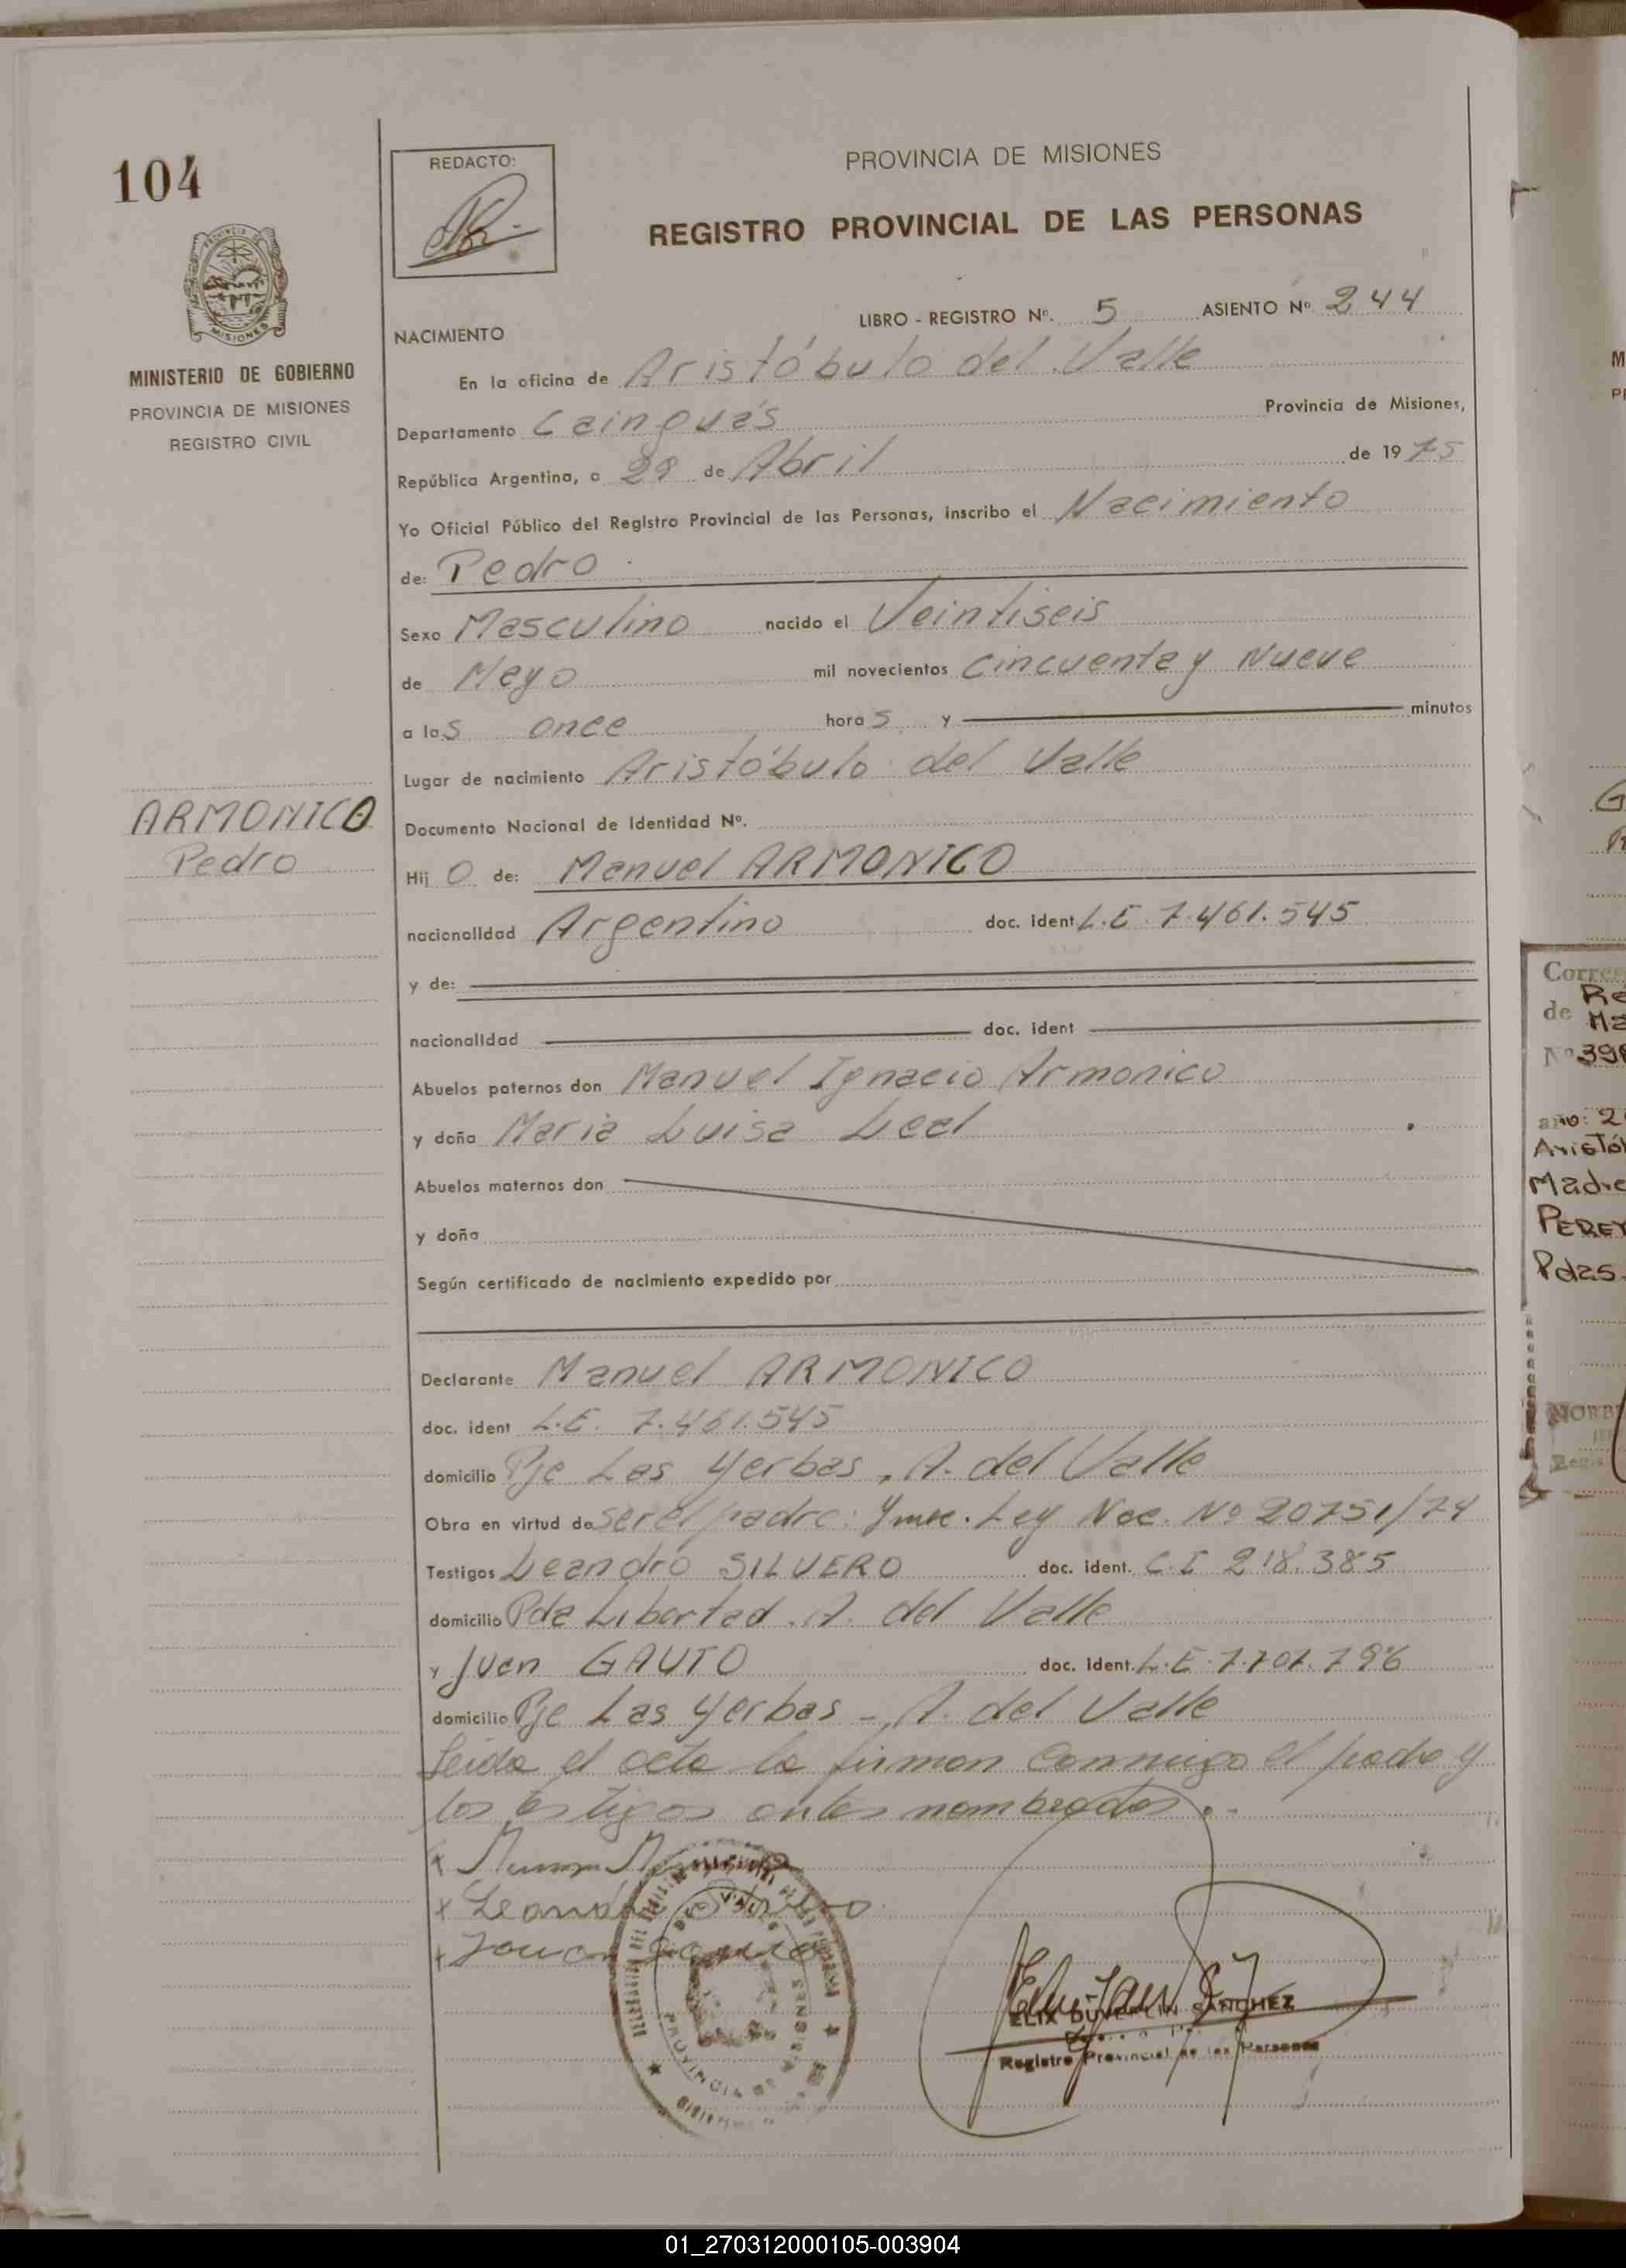 104
REDACTO:
PROVINCIA DE MISIONES
REGISTRO PROVINCIAL DE LAS PERSONAS
PROVINCIA DE
MISIONES
MINISTERIO DE GOBIERNO
PROVINCIA DE MISIONES
REGISTRO CIVIL
LIBRO - REGISTRO Nº. 5 ASIENTO Nº 244
NACIMIENTO
En la oficina de Aristóbulo del Valle
Departamento Cainguás Provincia de Misiones,
República Argentina, a 29 de Abril de 1975
Yo Oficial Público del Registro Provincial de las Personas, inscribo el Nacimiento
de: Pedro
Sexo Masculino nacido el Veintiseis
de Mayo mil novecientos cincuenta y Nueve
a las once horas y minutos
Lugar de nacimiento Aristóbulo del Valle
ARMONICO
Pedro
Documento Nacional de Identidad Nº.
Hijo de: Manuel ARMONICO
nacionalidad Argentino doc. ident L.E 7.461.545
y de:
nacionalidad doc. ident
Abuelos paternos don Manuel Ignacio Armonico
y doña Maria Luisa Leal
Abuelos maternos don
y doña
Según certificado de nacimiento expedido por
Declarante Manuel ARMONICO
doc. ident L.E. 7.461.545
domicilio Pje Las Yerbas, A. del Valle
Obra en virtud de ser el padre: Ley Nac. Nº 20751/74
Testigos Leandro SILVERO doc. ident. C.I 218.385
domicilio Pda Libertad. A. del Valle
y Juan GAUTO doc. ident. L.E
domicilio Pje Las Yerbas - A. del Valle
Leida el acta la firman conmigo el padre y
los testigos antes nombrados.-
SANCHEZ
Registro Provincial de las Personas
Corres
de Re
Ma
Nº 398
año: 2
Aristób
Madre
PEREY
Pdas.
NORB
01_270312000105-003904